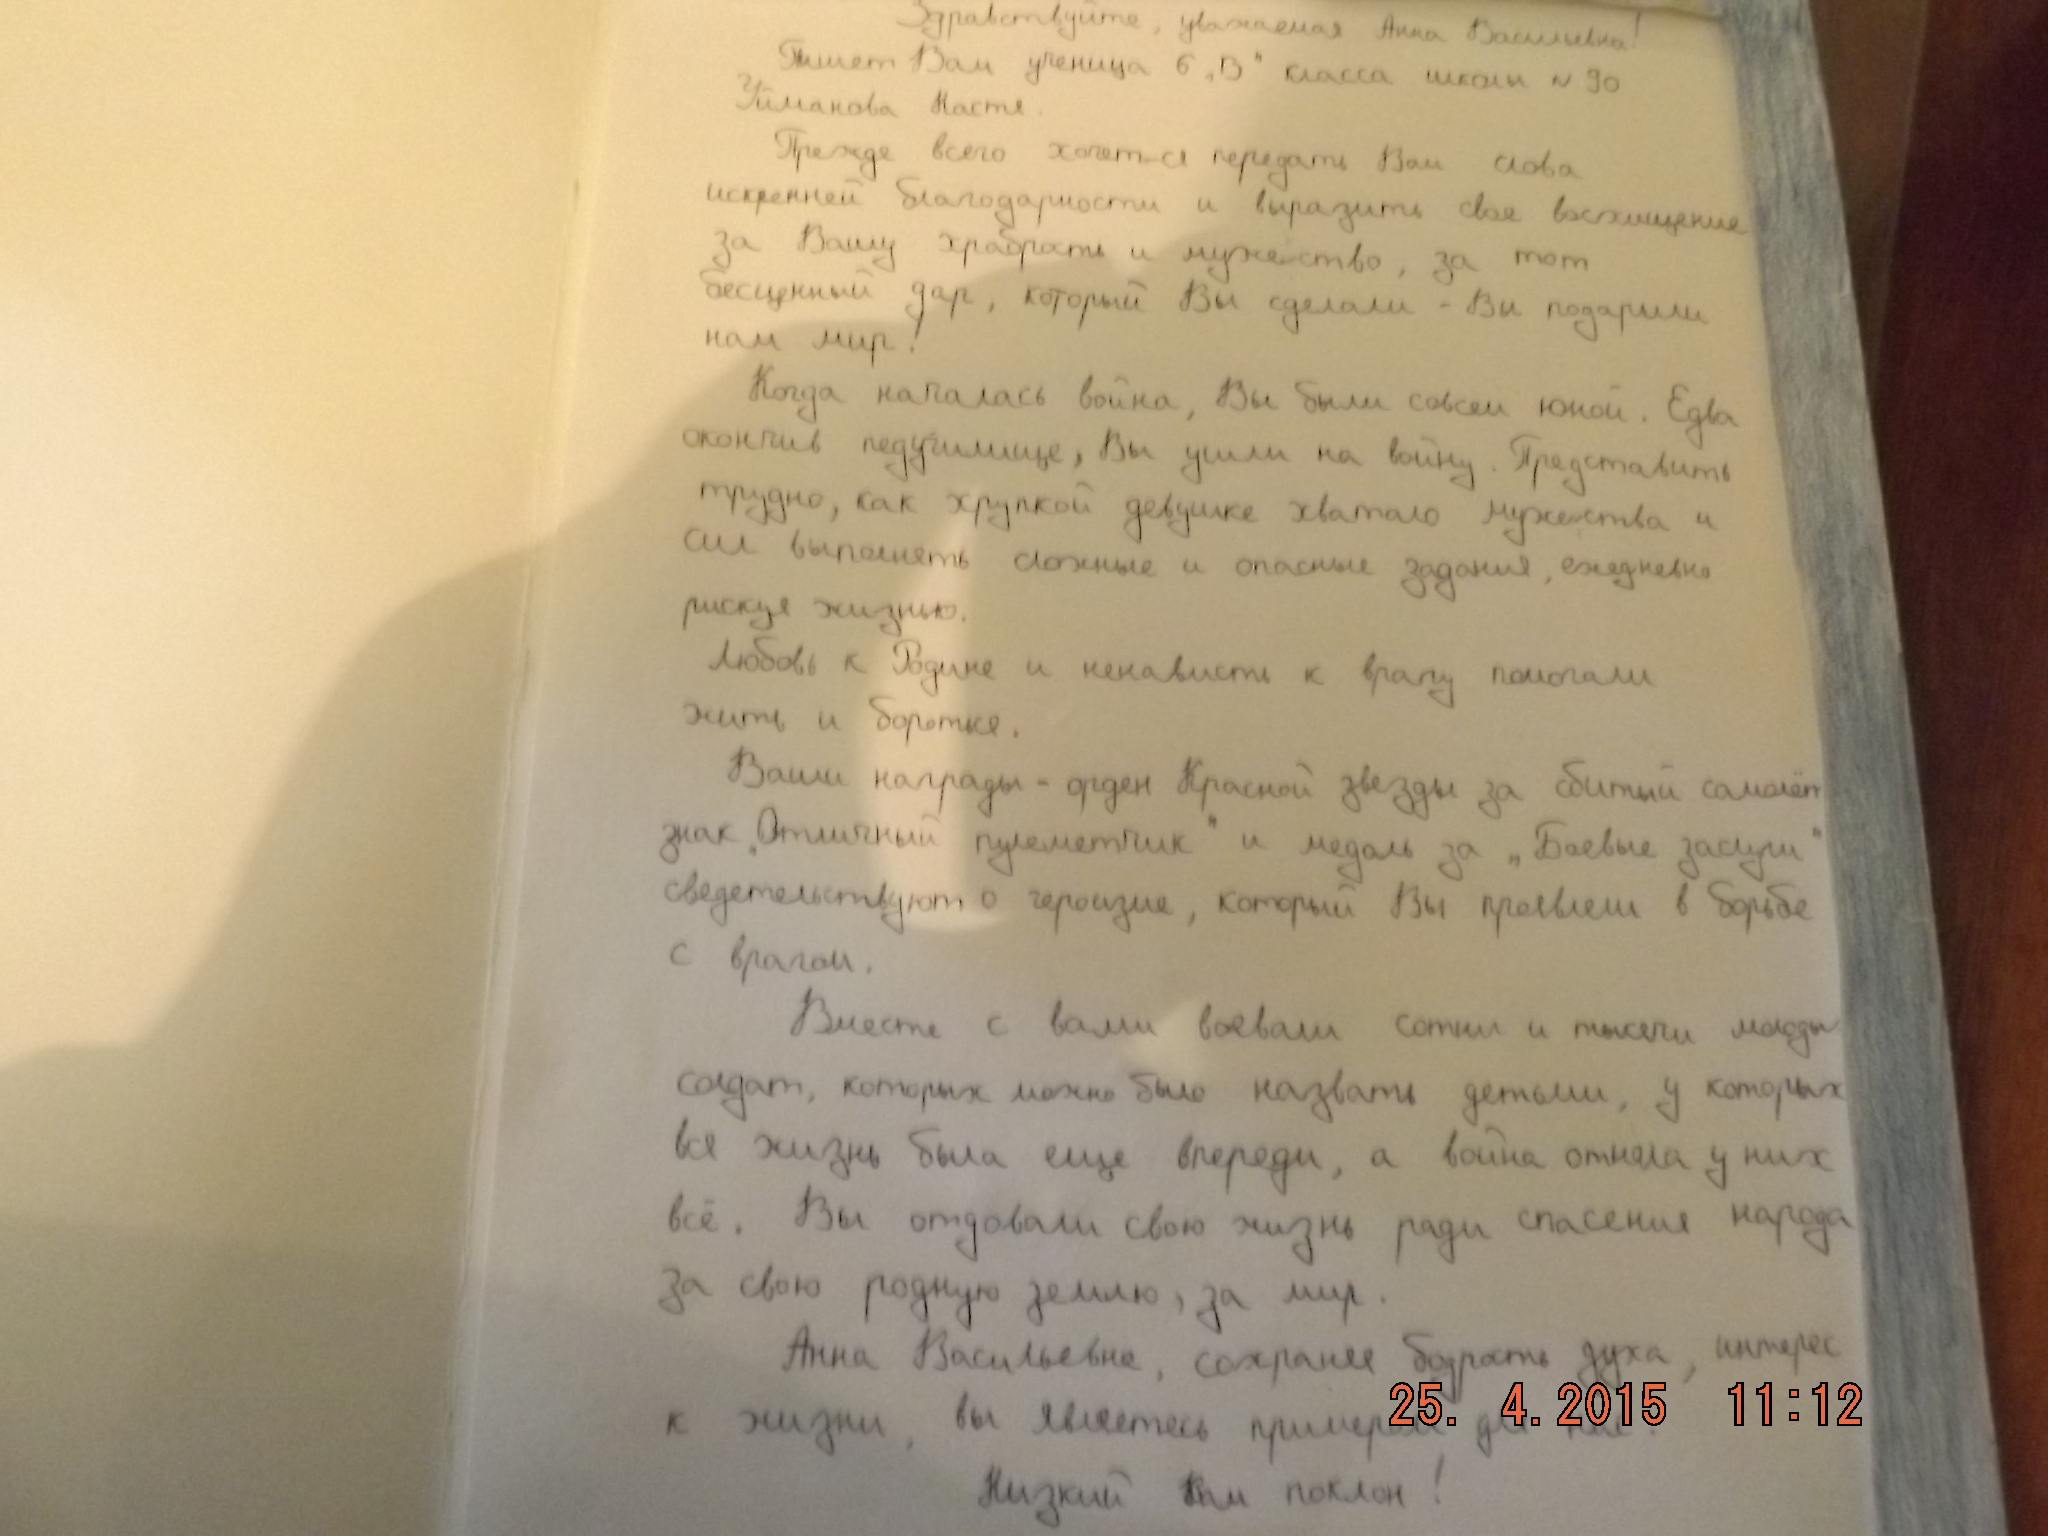 Здравствуйте, уважаемая Анна Васильевна!
Пишет Вам ученица 6 „В" класса школы № 90
Уйманова Настя.
Прежде всего хочется передать Вам слова
искренней благодарности и выразить свое восхищение
за Вашу храбрость и мужество, за тот
бесценный дар, который Вы сделали - Вы подарили
нам мир!
Когда началась война, Вы были совсем юной. Едва
окончив педучилище, Вы ушли на войну. Представить
трудно, как хрупкой девушке хватало мужества и
сил выполнять сложные и опасные задания, ежедневно
рискуя жизнью.
Любовь к Родине и ненависть к врагу помогали
жить и бороться.
Ваши награды - орден Красной звезды за сбитый самолёт
знак „Отличный пулеметчик" и медаль за „Боевые заслуги"
сведетельствуют о героизме, который Вы проявляли в борьбе
с врагом.
Вместе с вами воевали сотни и тысячи молоды
солдат, которых можно было назвать детьми, у которых
вся жизнь была еще впереди, а война отняла у них
всё. Вы отдавали свою жизнь ради спасения народа
за свою родную землю, за мир.
Анна Васильевна, сохраняя бодрость духа, интерес
к жизни, вы являетесь примером для нас.
Низкий Вам поклон!
25. 4.2015 11:12